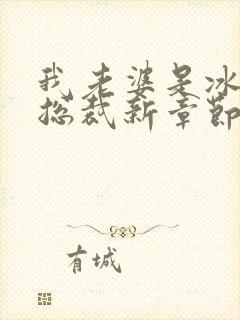 我老婆是冰
总裁新章节
有城